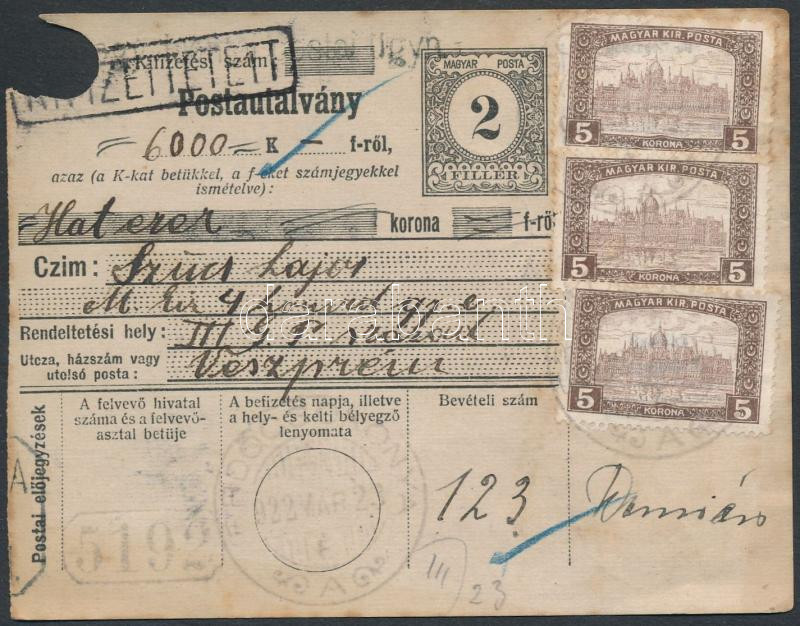 Kifizetési szám:
KIFIZETTETETT
Postautalvány
6000 K — f-ről,
azaz (a K-kat betükkel, a f-eket számjegyekkel
ismételve):
Hat ezer korona f-ről
Czim: Szücs Lajos
M. kir 4 honvéd gy. e,
Rendeltetési hely: III
Utcza, házszám vagy
utolsó posta: Veszprém
MAGYAR POSTA
2
FILLER
MAGYAR KIR. POSTA
5 5
KORONA
MAGYAR KIR. POSTA
5 5
KORONA
MAGYAR KIR. POSTA
5 5
KORONA
darabanth
Postai előjegyzések
A felvevő hivatal
száma és a felvevő-
asztal betüje
A befizetés napja, illetve
a hely- és kelti bélyegző
lenyomata
Bevételi szám
5192
922 MAR 23
123
Demién
III/23